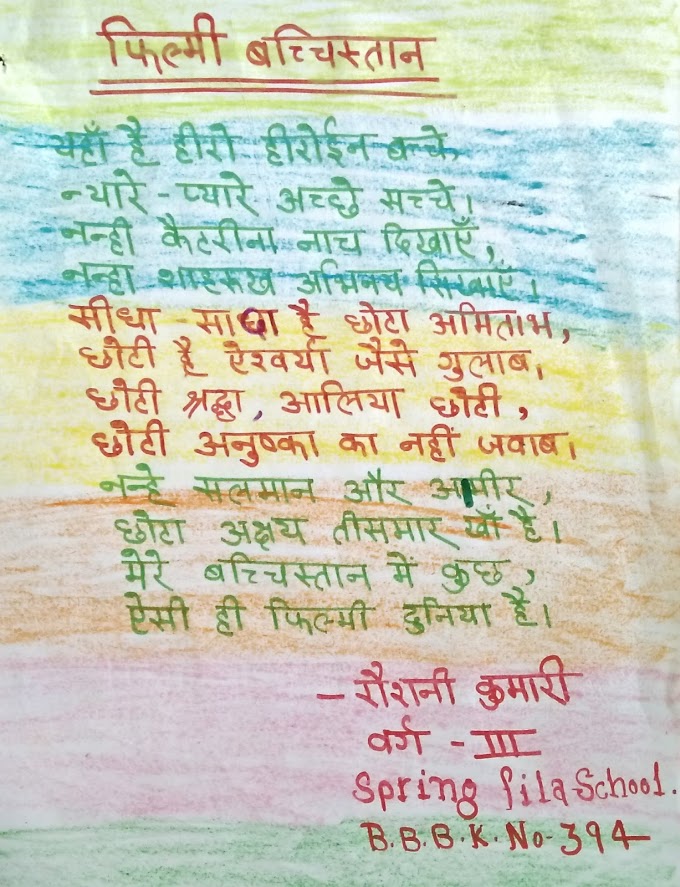 फिल्मी बच्चिस्तान
यहाँ है हीरो हीरोईन बच्चे,
न्यारे - प्यारे अच्छे सच्चे।
नन्ही कैटरीना नाच दिखाएँ,
नन्हा शाहरूख अभिनय सिखाएँ।
सीधा - सादा है छोटा अमिताभ,
छोटी है ऐश्वर्या जैसे गुलाब,
छोटी श्रद्धा, आलिया छोटी,
छोटी अनुष्का का नहीं जवाब।
नन्हे सलमान और आमीर,
छोटा अक्षय तीसमार खाँ है।
मेरे बच्चिस्तान में कुछ,
ऐसी ही फिल्मी दुनिया है।
- रौशनी कुमारी
वर्ग - III
Spring fila School.
B.B.B.K.No-394